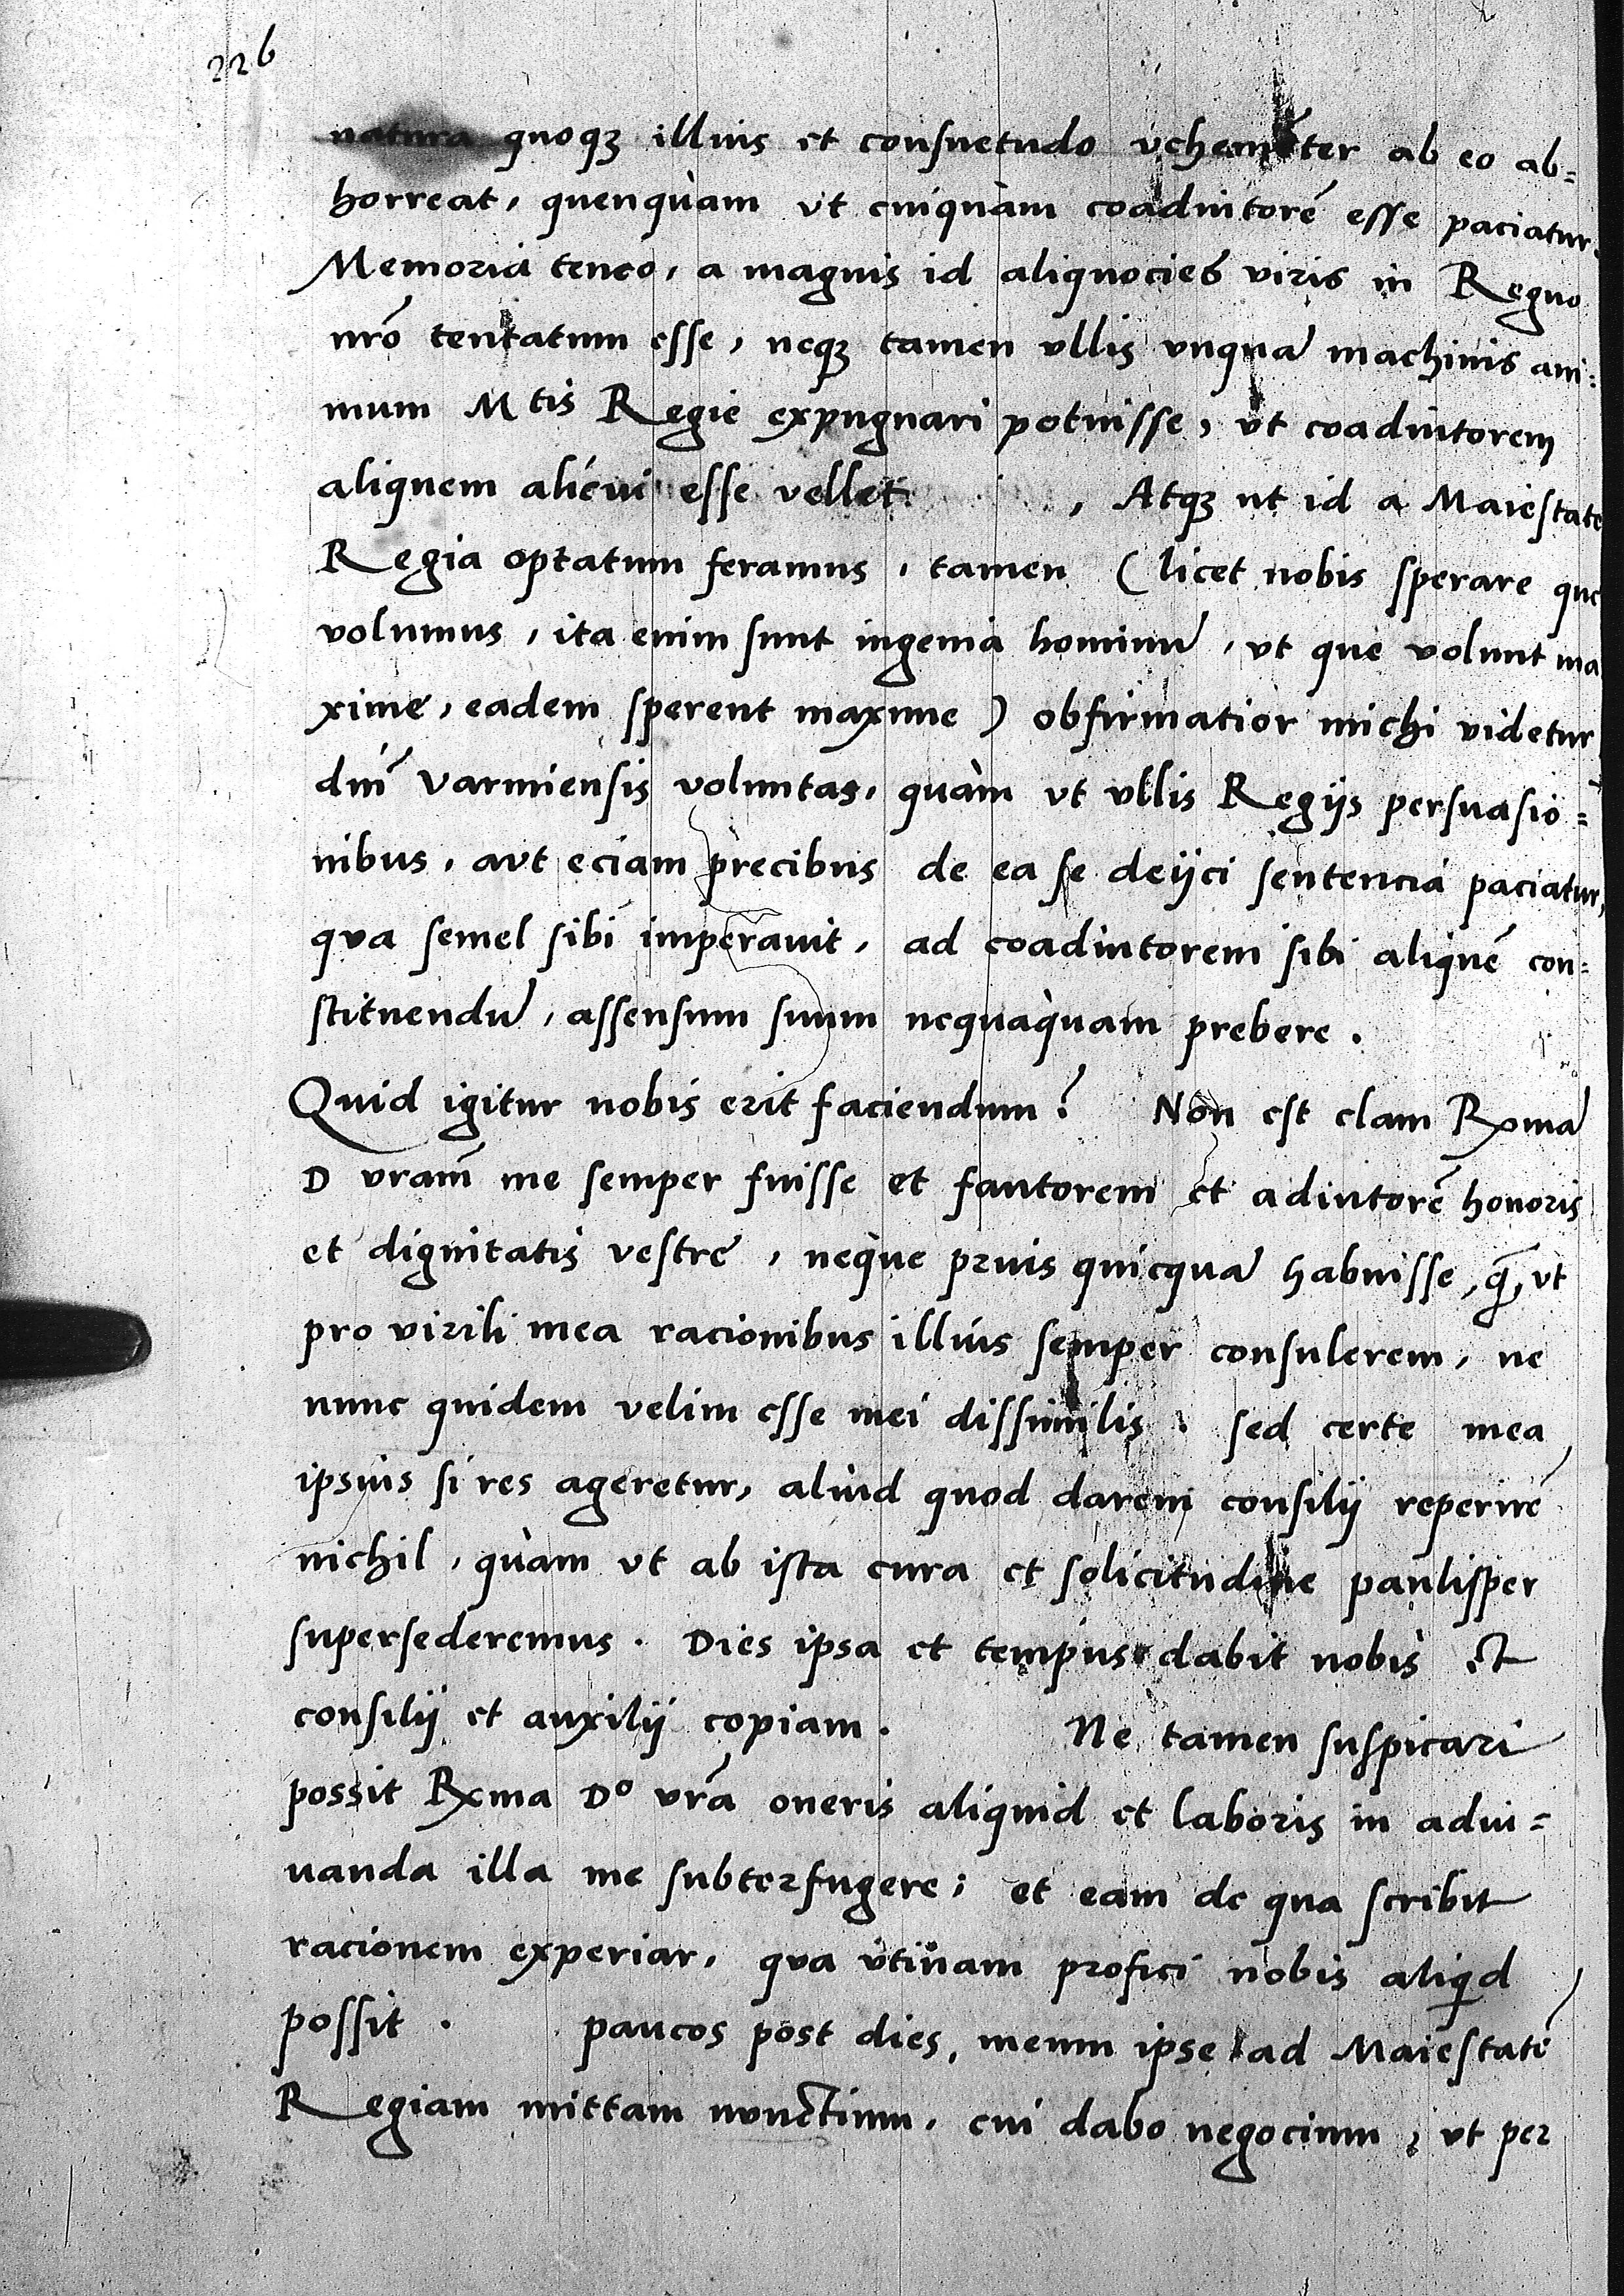 226
natura quoqꝫ illius et consuetudo vehementer ab eo ab=
horreat, quenquàm vt cuiquàm coadiutorē esse paciatur.
Memoriā teneo, a magnis id aliquocies viris in Regno
nr̄o tentatum esse, neqꝫ tamen vllis vnquā machinis ani=
mum Mtis Regie expugnari potuisse, vt coadiutorem
aliquem alicui esse vellet , Atqꝫ ut id a Maiestate
Regia optatum feramus, tamen (licet nobis sperare que
volumus, ita enim sunt ingenia hominū, vt que volunt ma
xime, eadem sperent maxime) obfirmatior michi videtur
dn̄i Varmiensis voluntas, quàm vt vllis Regijs persuasio=
nibus, aut eciam precibus de ea se deijci sentenciā paciatur,
qua semel sibi imperauit, ad coadiutorem sibi aliquē con=
stituendū, assensum suum nequaquàm prebere.
Quid igitur nobis erit faciendum? Non est clam Rxmā
D vram̄ me semper fuisse et fautorem et adiutorē honoris
et dignitatis vestre, neque prius quicquā habuisse, q̄, vt
pro virili mea racionibus illius semper consulerem, ne
nunc quidem velim esse mei dissimilis. sed certe mea
ipsius si res ageretur, aliud quod darem consilij reperirē
nichil, quàm vt ab ista cura et solicitudine paulisper
supersederemus. Dies ipsa et tempus dabit nobis et
consilij et auxilij copiam. Ne tamen suspicari
possit Rxma Do vrā oneris aliquid et laboris in adiu=
uanda illa me subterfugere; et eam de qua scribit
racionem experiar, qua vtinam profici nobis aliqid
possit. paucos post dies, meum ipse ad Maiestatē
Regiam mittam nunctium, cui dabo negocium, vt per